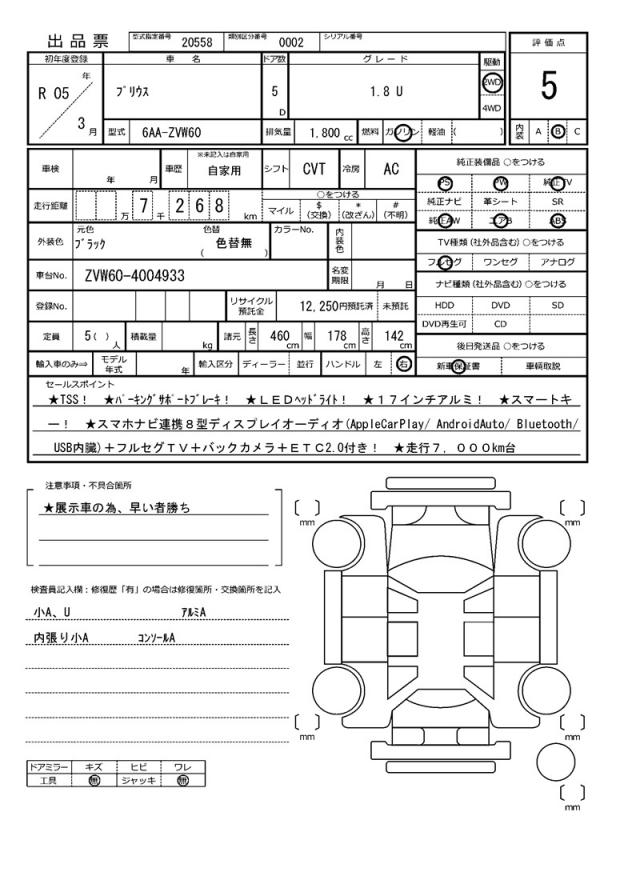 出品票 型式指定番号 20558 類別区分番号 0002 シリアル番号
評価点
5
内装 A B C
初年度登録 車名 ドア数 グレード 駆動
R 05 年 3 月 プリウス 5 D 1.8 U 2WD 4WD
型式 6AA-ZVW60 排気量 1.800 cc 燃料 ガソリン 軽油 ( )
車検 年 月 車歴 ※未記入は自家用 自家用 シフト CVT 冷房 AC
走行距離 万 7 千 2 6 8 km ○をつける
マイル $(交換) *(改ざん) #(不明)
外装色 元色 ブラック 色替 色替無 ( ) カラーNo. 内装色
車台No. ZVW60-4004933 名変期限 月 日
登録No. リサイクル預託金 12,250円預託済 未預託
定員 5 ( ) 人 積載量 kg 諸元 長さ 460 cm 幅 178 cm 高さ 142 cm
輸入車のみ⇒ モデル年式 年 輸入区分 ディーラー 並行 ハンドル 左 右
純正装備品 ○をつける
PS PW 純正TV
純正ナビ 革シート SR
純正AW エアB ABS
TV種類(社外品含む)○をつける
フルセグ ワンセグ アナログ
ナビ種類(社外品含む)○をつける
HDD DVD SD
DVD再生可 CD
後日発送品 ○をつける
新車保証書 車輌取説
セールスポイント
★TSS! ★パーキングサポートブレーキ! ★LEDヘッドライト! ★17インチアルミ! ★スマートキ
ー! ★スマホナビ連携8型ディスプレイオーディオ(AppleCarPlay/ AndroidAuto/ Bluetooth/
USB内臓)+フルセグTV+バックカメラ+ETC2.0付き! ★走行7,000km台
注意事項・不具合箇所
★展示車の為、早い者勝ち
検査員記入欄:修復歴「有」の場合は修復箇所・交換箇所を記入
小A、U アルミA
内張り小A コンソールA
ドアミラー キズ ヒビ ワレ
工具 無 ジャッキ 無
〔 〕 mm
〔 〕 mm
〔 〕 mm
〔 〕 mm
〔 〕 mm